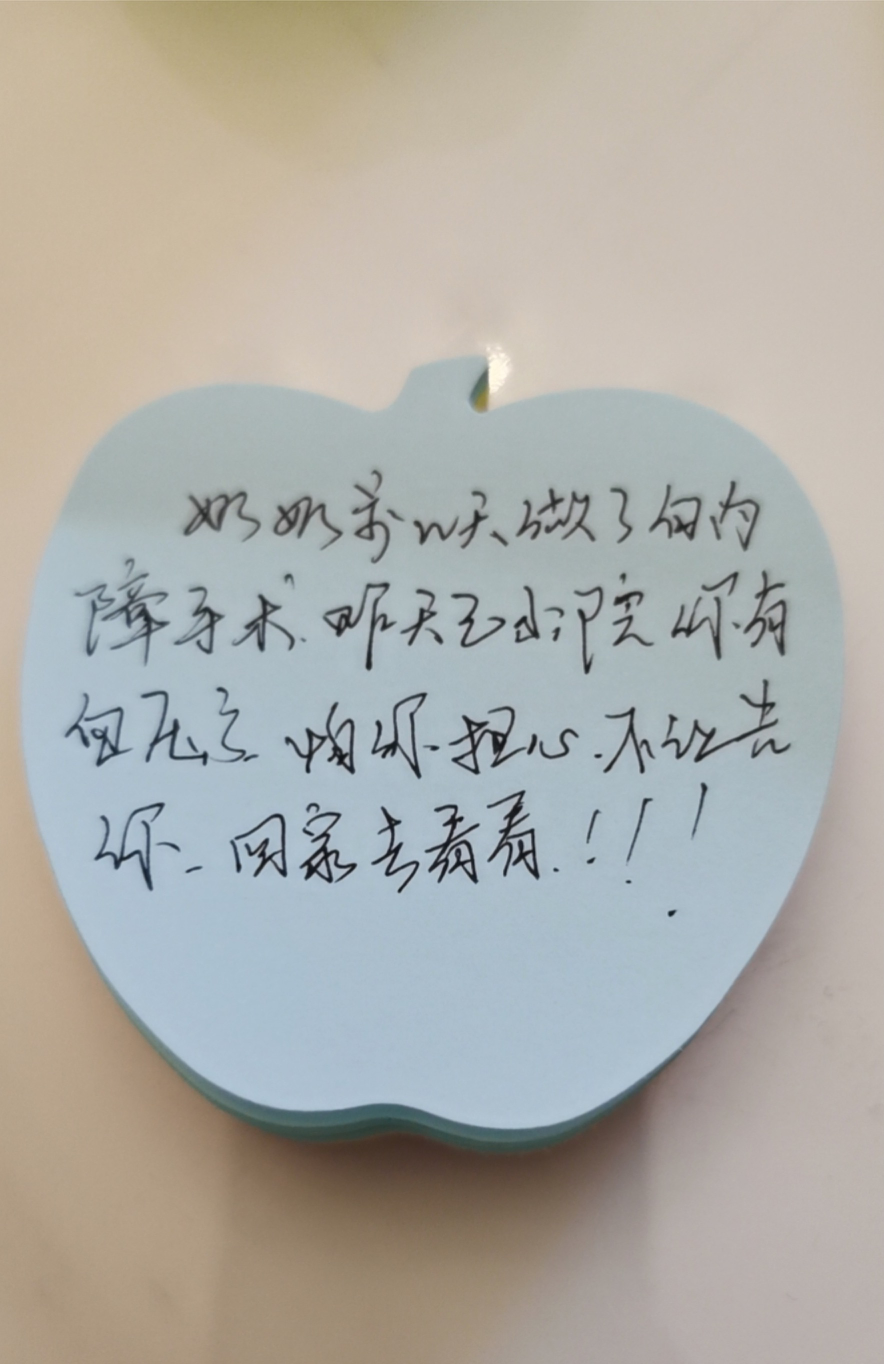 奶奶前几天做了白内
障手术.昨天已出院 你有
白压高 怕你担心.不让告
你.回家去看看.!!!